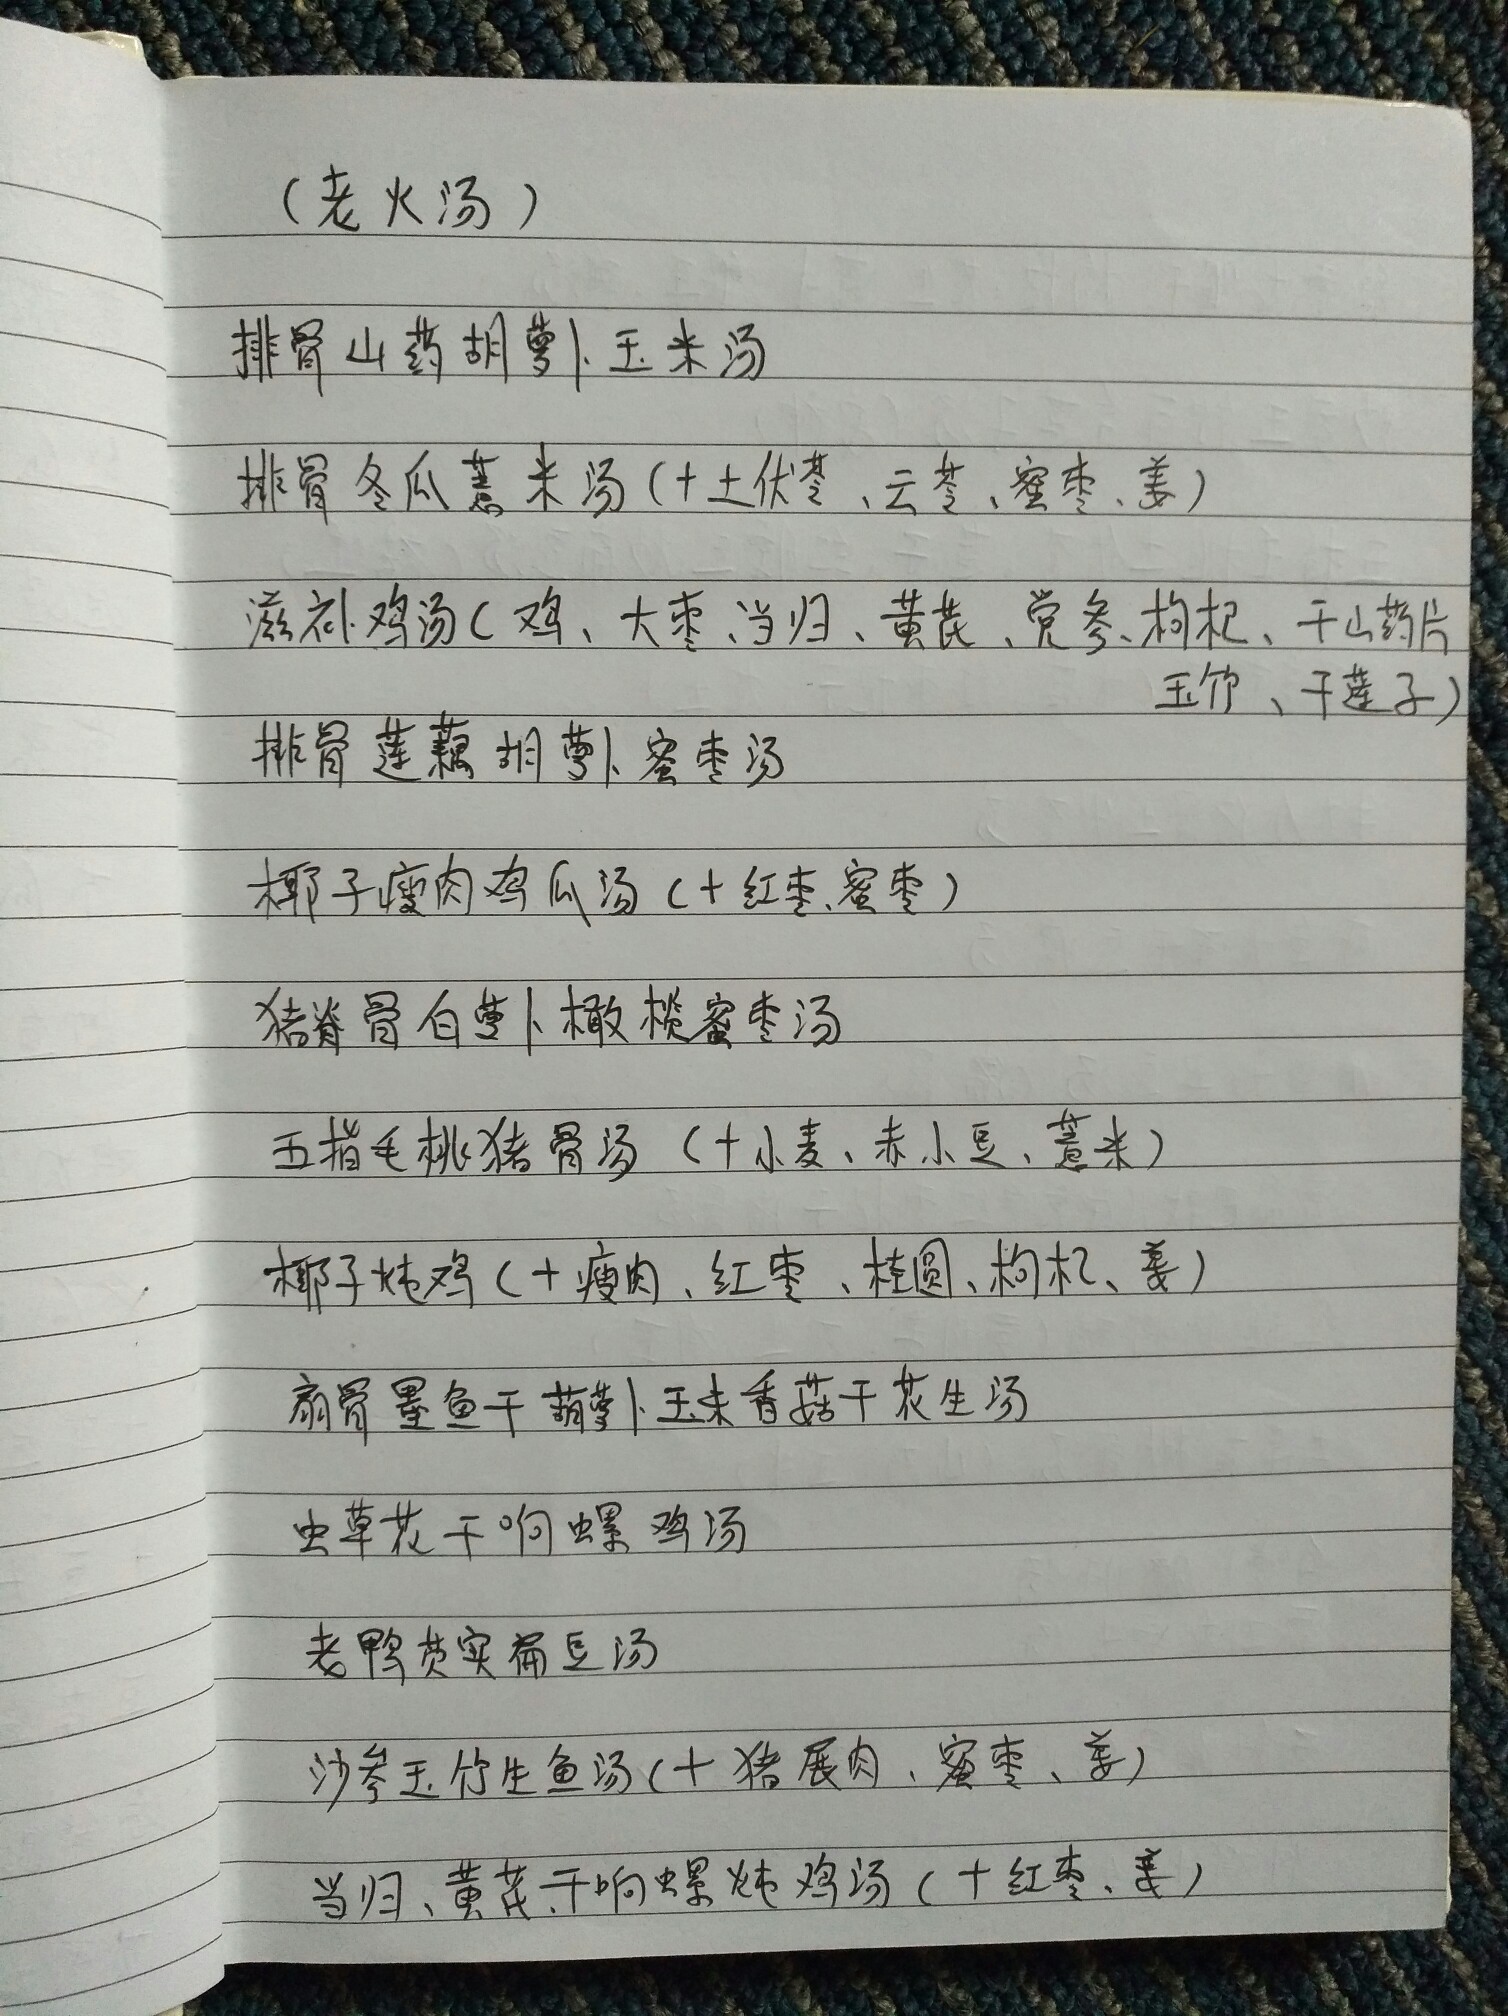 （老火汤）
排骨山药胡萝卜玉米汤
排骨冬瓜薏米汤（+土伏苓、云苓、蜜枣、姜）
滋补鸡汤（鸡、大枣、当归、黄芪、党参、枸杞、干山药片
玉竹、干莲子）
排骨莲藕胡萝卜蜜枣汤
椰子瘦肉鸡瓜汤（+红枣、蜜枣）
猪脊骨白萝卜橄榄蜜枣汤
五指毛桃猪骨汤（+小麦、赤小豆、薏米）
椰子炖鸡（+瘦肉、红枣、桂圆、枸杞、姜）
扇骨墨鱼干葫萝卜玉米香菇干花生汤
虫草花干响螺鸡汤
老鸭芡实扁豆汤
沙参玉竹生鱼汤（+猪展肉、蜜枣、姜）
当归、黄芪、干响螺炖鸡汤（+红枣、姜）